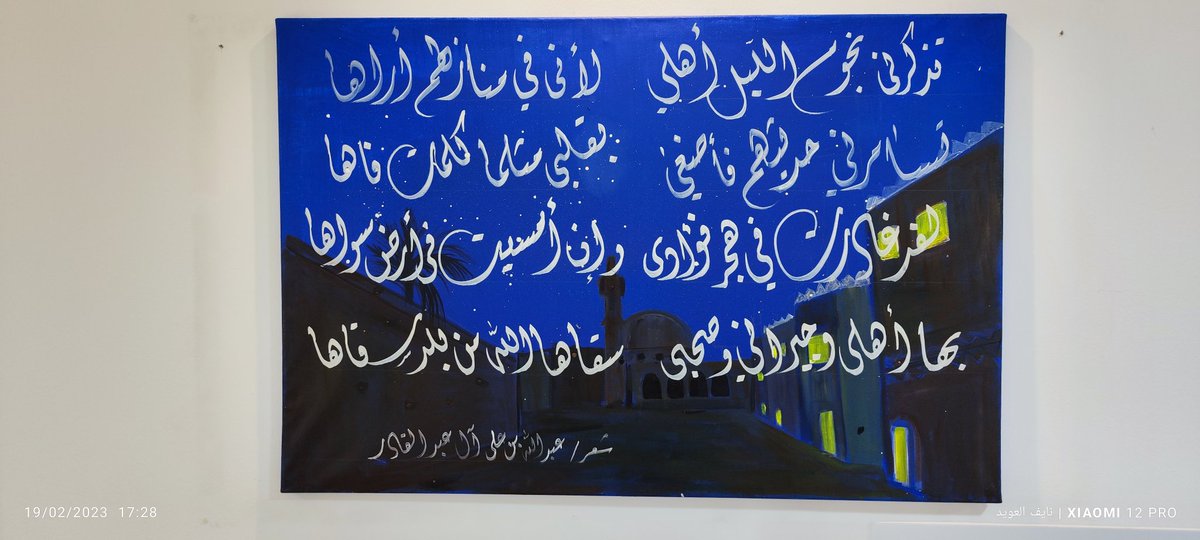 تذكرني نجوم الليل أهلي لأني في منازلهم أراها
تسامرني حديثهم فأصغي بقلبي مثلما كلمت فاها
لقد غادرت في هجر فؤادي وإن أمسيت في أرض سواها
بها أهلي وجيراني وصحبي سقاها الله من بلد سقاها
شعر/ عبدالله بن علي آل عبدالقادر
19/02/2023 17:28
نايف العويد | XIAOMI 12 PRO